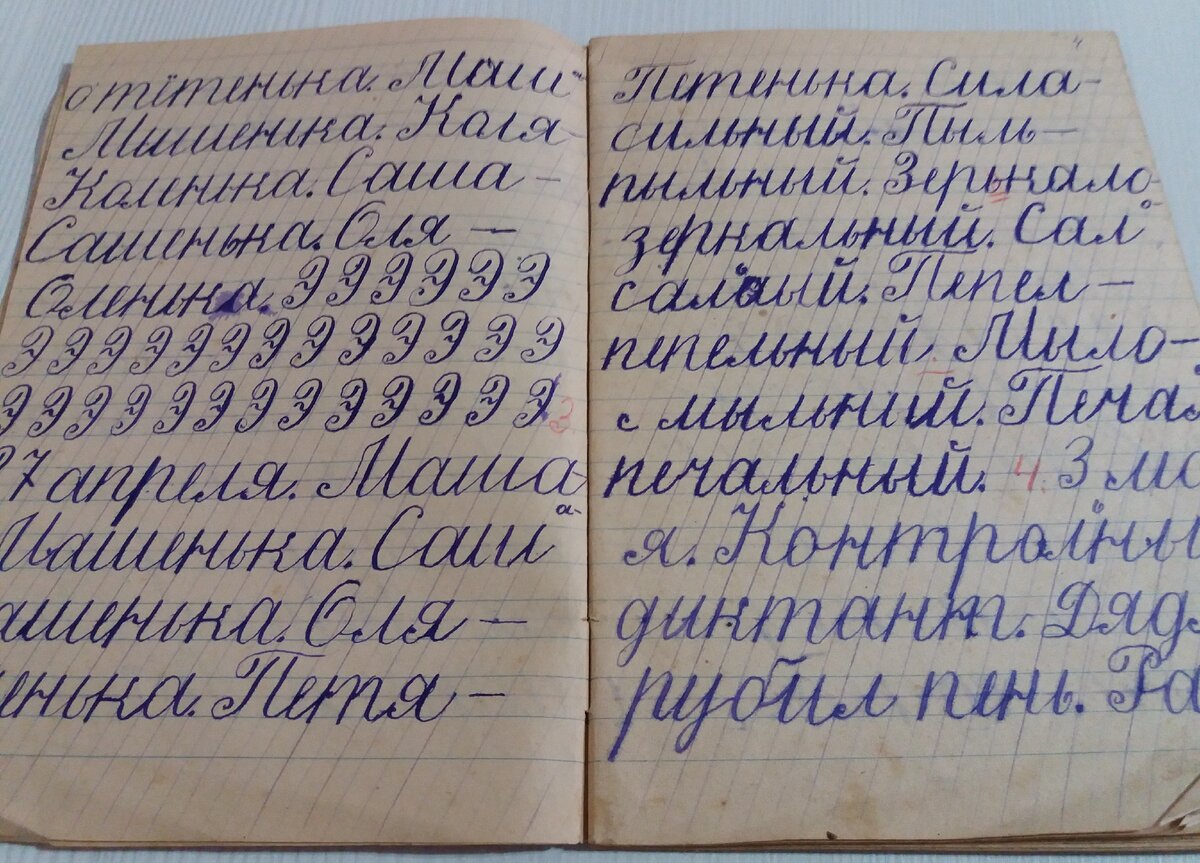 тётенька. Маша
Мишенька. Коля-
Коленька. Саша -
Сашенька. Оля -
Оленька. Э Э Э Э Э Э
Э Э Э Э Э Э Э Э Э Э Э Э
Э Э Э Э Э Э Э Э Э Э Э Э 3
27 апреля. Маша-
Машенька. Саша-
ашенька. Оля -
енька. Петя -
Петенька. Сила-
сильный. Пыль-
пыльный. Зерькало-
зеркальный. Сало-
сальный. Пепел -
пепельный Мыло-
мыльный. Печал
печальный. 4 3 ма
я. Контролны
диктант. Дяд
рубил пень. Ра